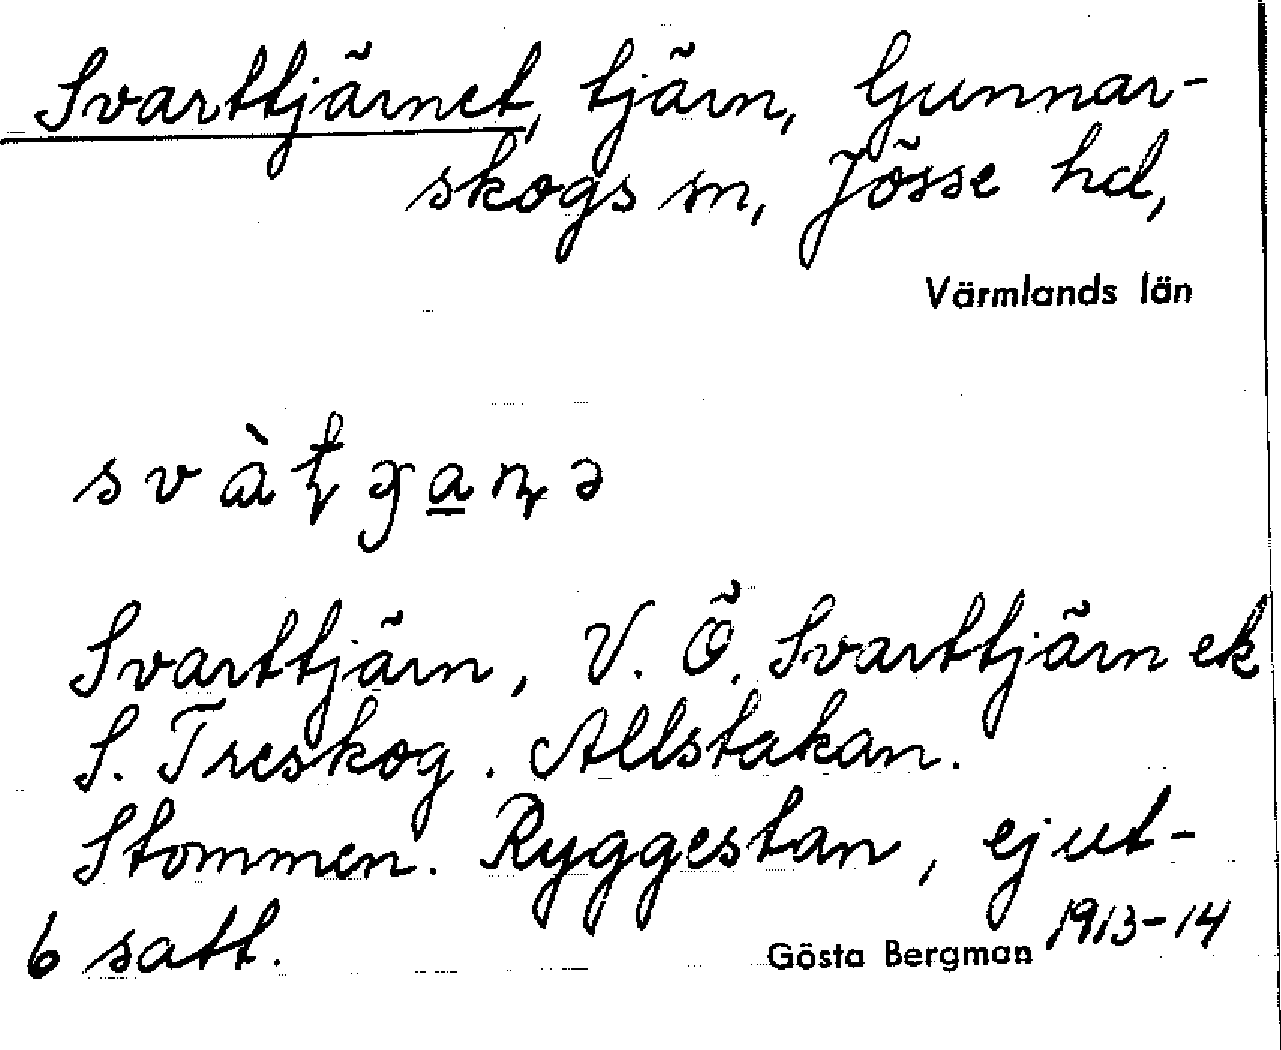 Svarttjärnet, tjärn, Gunnar-
skogs sn, Jösse hd,
Värmlands län
Svarttjärn, V. Ö. Svarttjärn ek
S. Treskog. Allstakan.
Stommen. Ryggestan, ej ut-
6 satt.
Gösta Bergman 1913-14